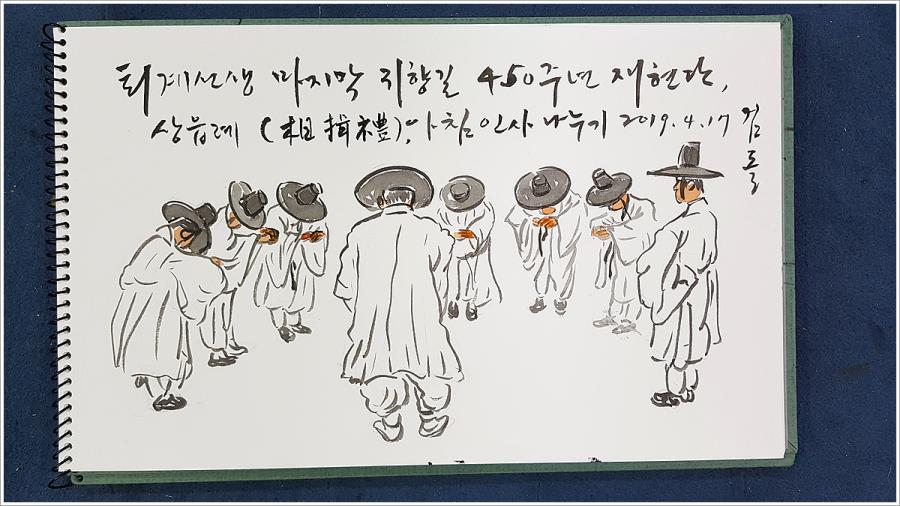 퇴계선생 마지막 귀향길 450주년 재현단,
상읍례 (相揖禮). 아침인사 나누기 2019.4.17
검돌